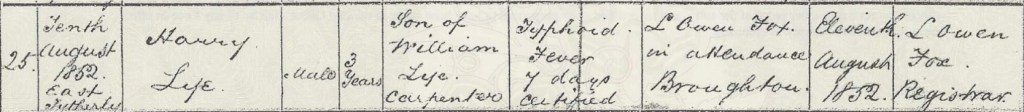 25.
Tenth
August
1852.
East
Tytherly
Harry
Lye.
Male
3
Years
Son of
William
Lye.
Carpenter
Typhoid
Fever
7 days
Certified
L Owen Fox.
in attendance
Broughton.
Eleventh
August
1852.
L Owen
Fox.
Registrar.